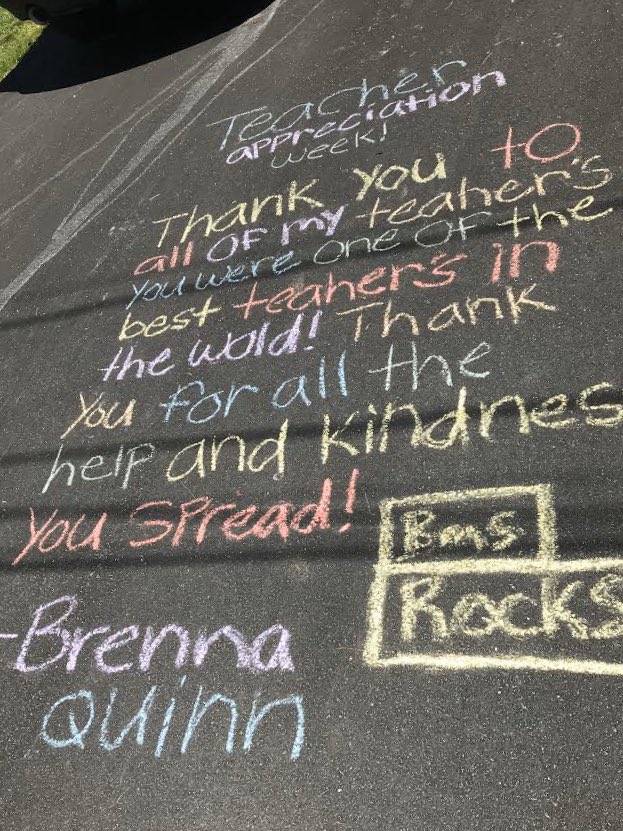 Teacher
appreciation
week!
Thank you to
all of my teaher's
you were one of the
best teaher's in
the wold! Thank
you for all the
help and kindnes
you spread!
Bms
Rocks
-Brenna
Quinn